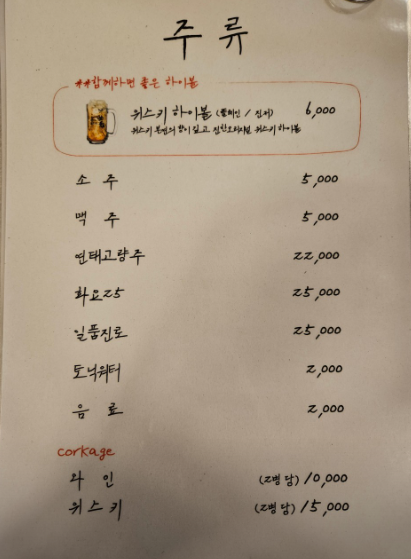 주 류
##함께하면 좋은 하이볼
위스키 하이볼 (플레인 / 진저) 6,000
위스키 본연의 향이 깊고 진한 오리지널 위스키 하이볼
소 주 5,000
맥 주 5,000
연태고량주 22,000
화요25 25,000
일품진로 25,000
토닉워터 2,000
음 료 2,000
corkage
와 인 (2병 당) 10,000
위스키 (2병 당) 15,000